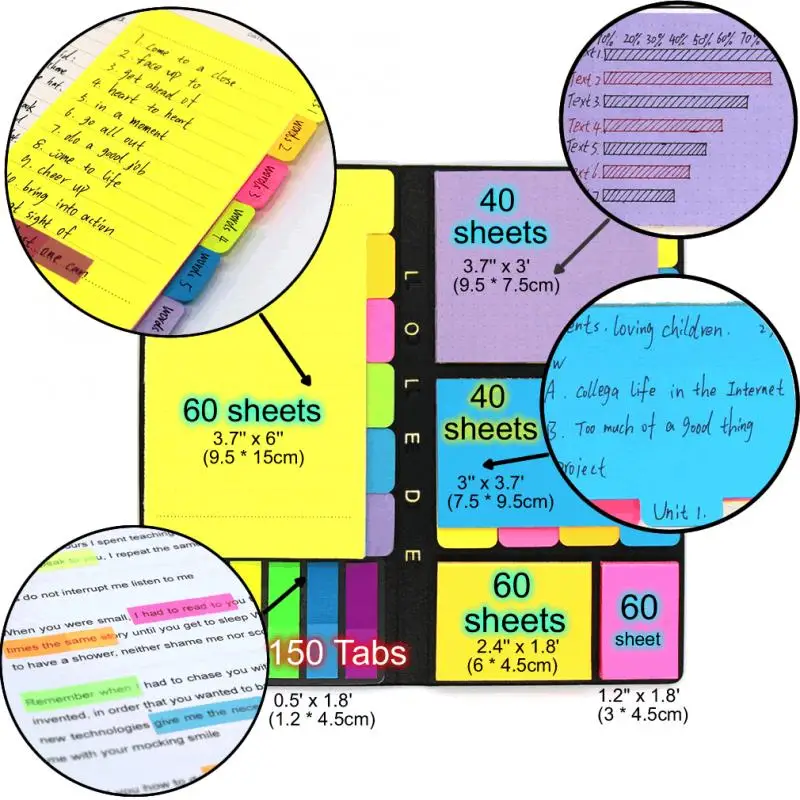 1. come to a close.
2. face up to
3. get ahead of
4. heart to heart
5. in a moment
6. go all out
7. do a good job
8. come to life
9. cheer up
10. bring into action
at sight of
one can
words 2
words 3
words 4
words 5
words
10% 20% 30% 40% 50% 60% 70%
Text 1
Text 2
Text 3
Text 4
Text 5
Text 6
7
40
sheets
3.7" x 3'
(9.5 * 7.5cm)
LOLEDE
60 sheets
3.7" x 6"
(9.5 * 15cm)
40
sheets
3" x 3.7'
(7.5 * 9.5cm)
ents. loving children. 2,
W
A. collega life in the Internet
B. Too much of a good thing
project
Unit 1.
ours I spent teaching
speak to you, I repeat the same
do not interrupt me listen to me
When you were small, I had to read to you
times the same story until you get to sleep
to have a shower, neither shame me nor sco
Remember when I had to chase you with
invented, in order that you wanted to b
new technologies give me the nece
me with your mocking smile
you how to
150 Tabs
0.5' x 1.8'
(1.2 * 4.5cm)
60
sheets
2.4" x 1.8'
(6 * 4.5cm)
60
sheet
1.2" x 1.8'
(3 * 4.5cm)